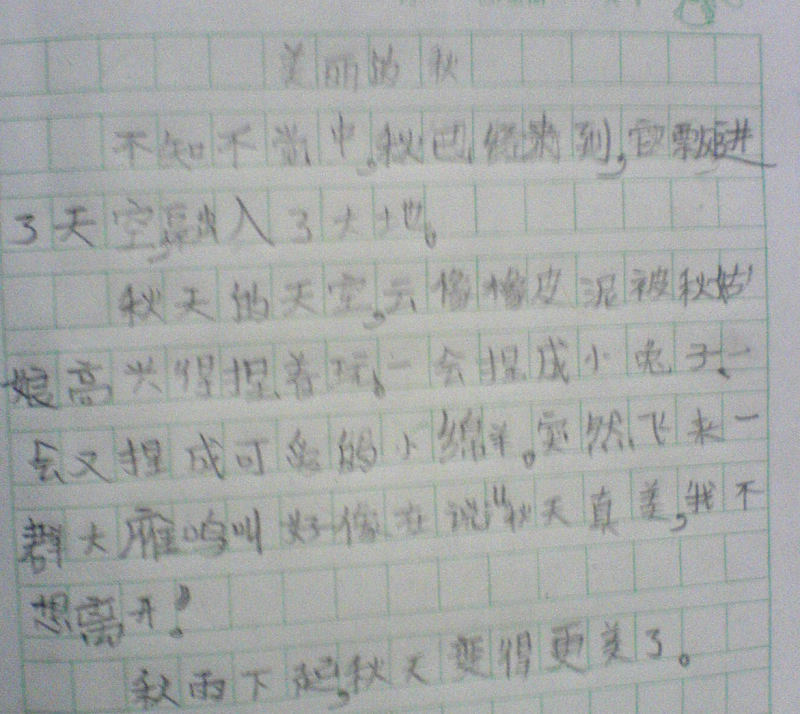 美丽的秋
不知不觉中,秋已经来到,它飘进
了天空,融入了大地。
秋天的天空,云像橡皮泥被秋姑
娘高兴得捏着玩。一会捏成小兔子、一
会又捏成可爱的小绵羊。突然飞来一
群大雁鸣叫好像在说"秋天真美,我不
想离开!
秋雨下起,秋天变得更美了。